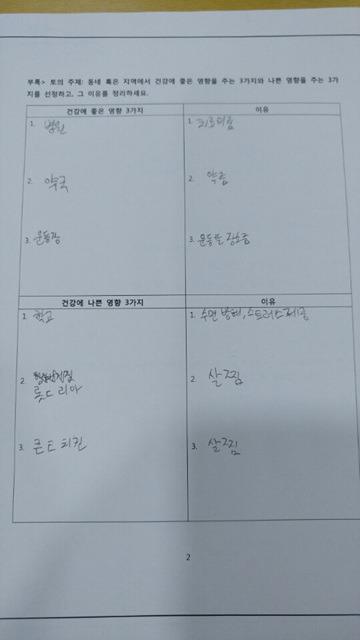 부록> 토의 주제: 동네 혹은 지역에서 건강에 좋은 영향을 주는 3가지와 나쁜 영향을 주는 3가
지를 선정하고, 그 이유를 정리하세요.
건강에 좋은 영향 3가지 이유
1. 병원 1.
2. 약국 2. 약줌
3. 운동장 3. 운동을
건강에 나쁜 영향 3가지 이유
1. 학교 1. 수면 방해, 스트레스 제공
2. 롯드리아 2. 살찜
3. 큰 E 치킨 3. 살찜
2